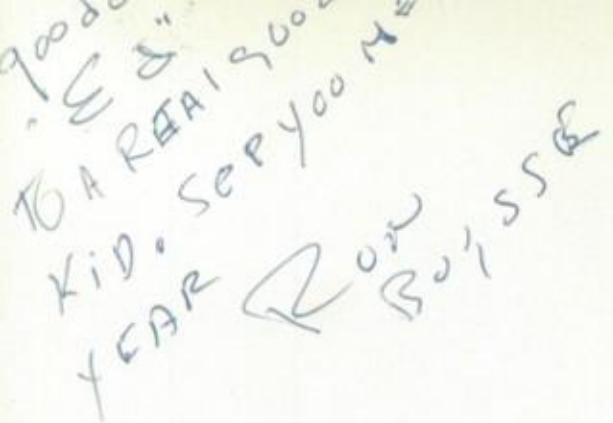 good
"Ed"
TO A REAl good
KiD. See yoo Ne
YEAR
Ron
BoisSE